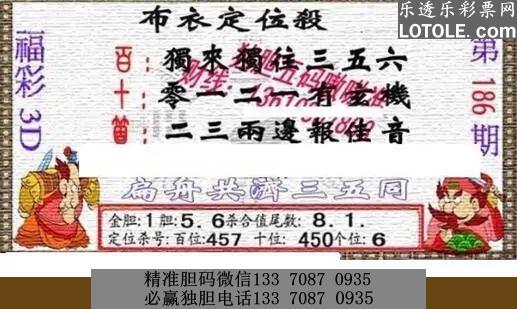 布衣定位殺
乐透乐彩票网
LOTOLE.com
福彩3D
第186期
百：獨來獨往三五六
十：零一二一有玄機
個：二三兩邊報佳音
扁舟共濟三五同
金胆:1胆:5.6杀合值尾数:8.1.
定位杀号:百位:457 十位:450个位:6
精准胆码微信133 7087 0935
必赢独胆电话133 7087 0935